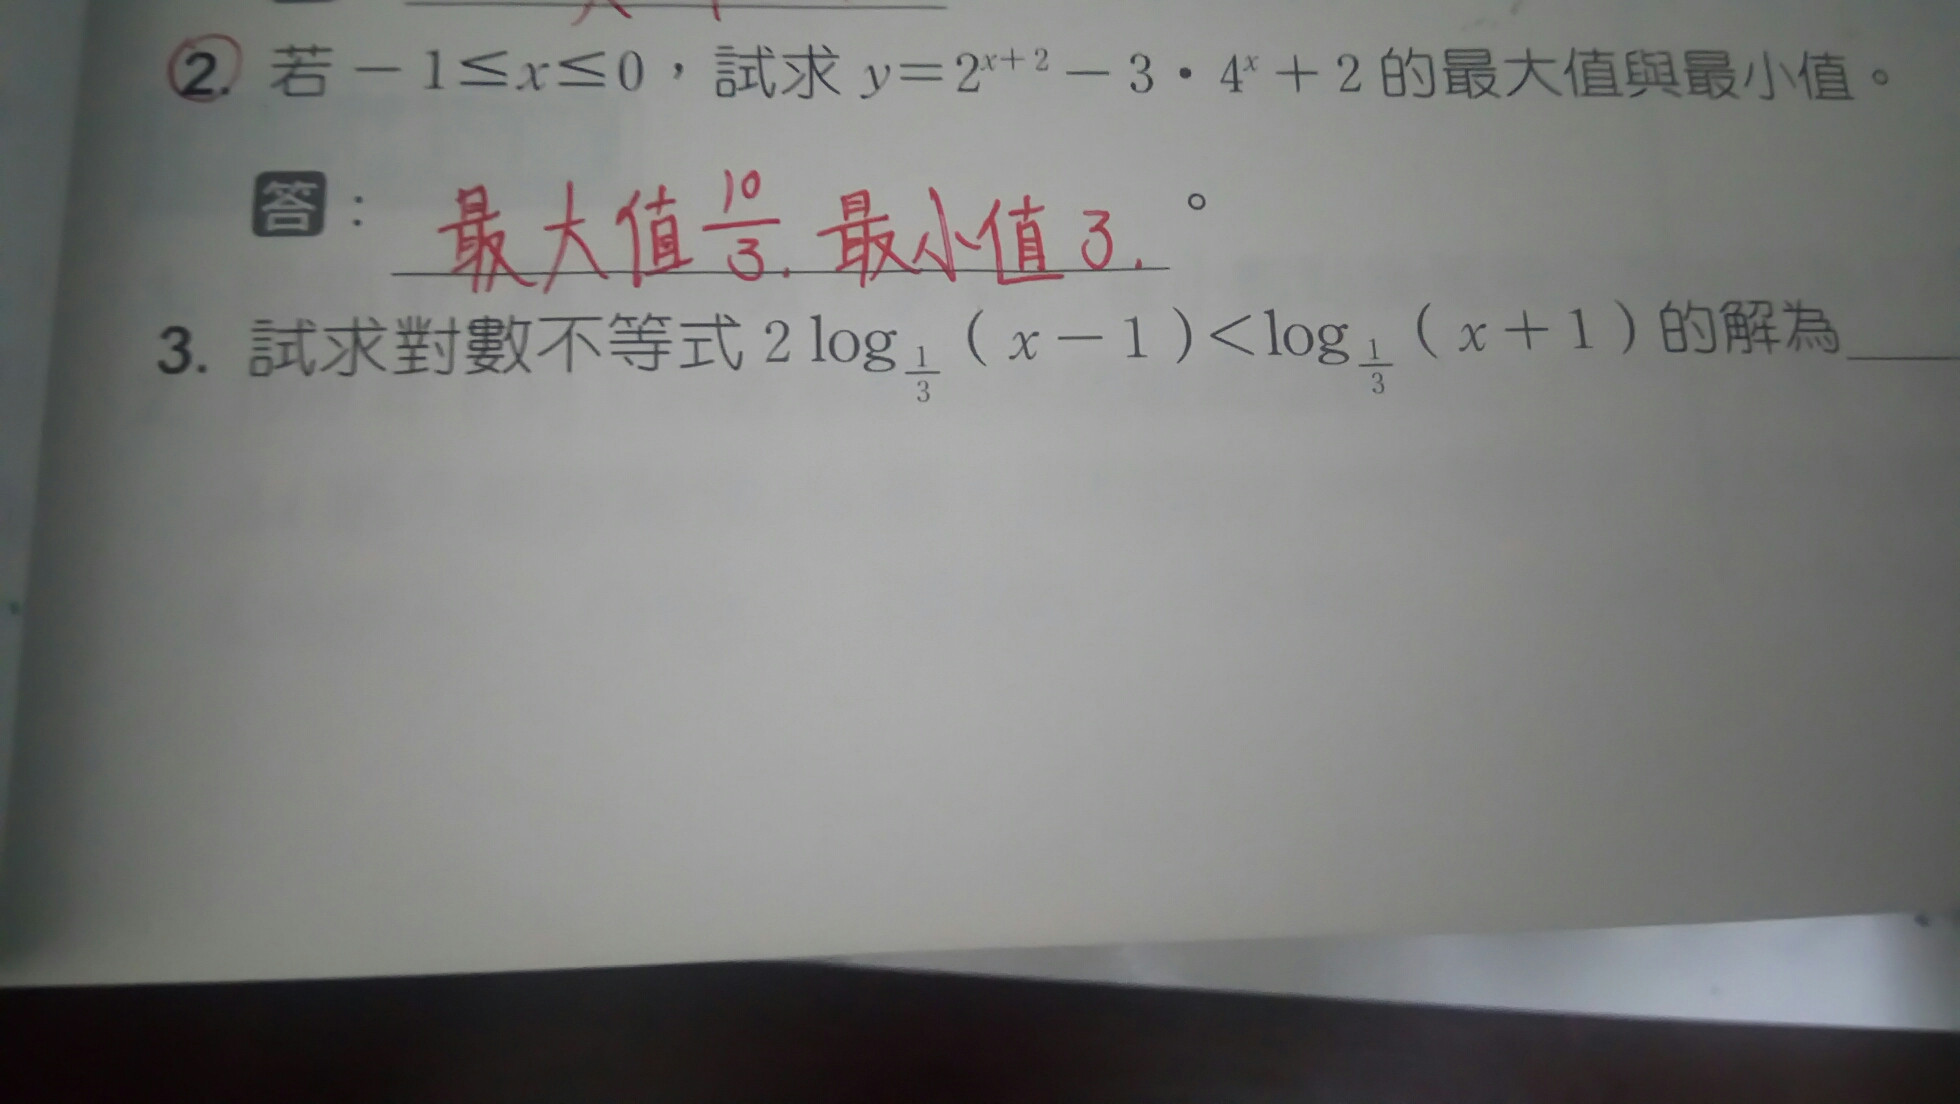 2. 若－1≤x≤0，試求 y＝2ˣ⁺²－3・4ˣ＋2 的最大值與最小值。
答：最大值 10/3. 最小值 3. 。
3. 試求對數不等式 2 log_{1/3}（x－1）＜log_{1/3}（x＋1）的解為